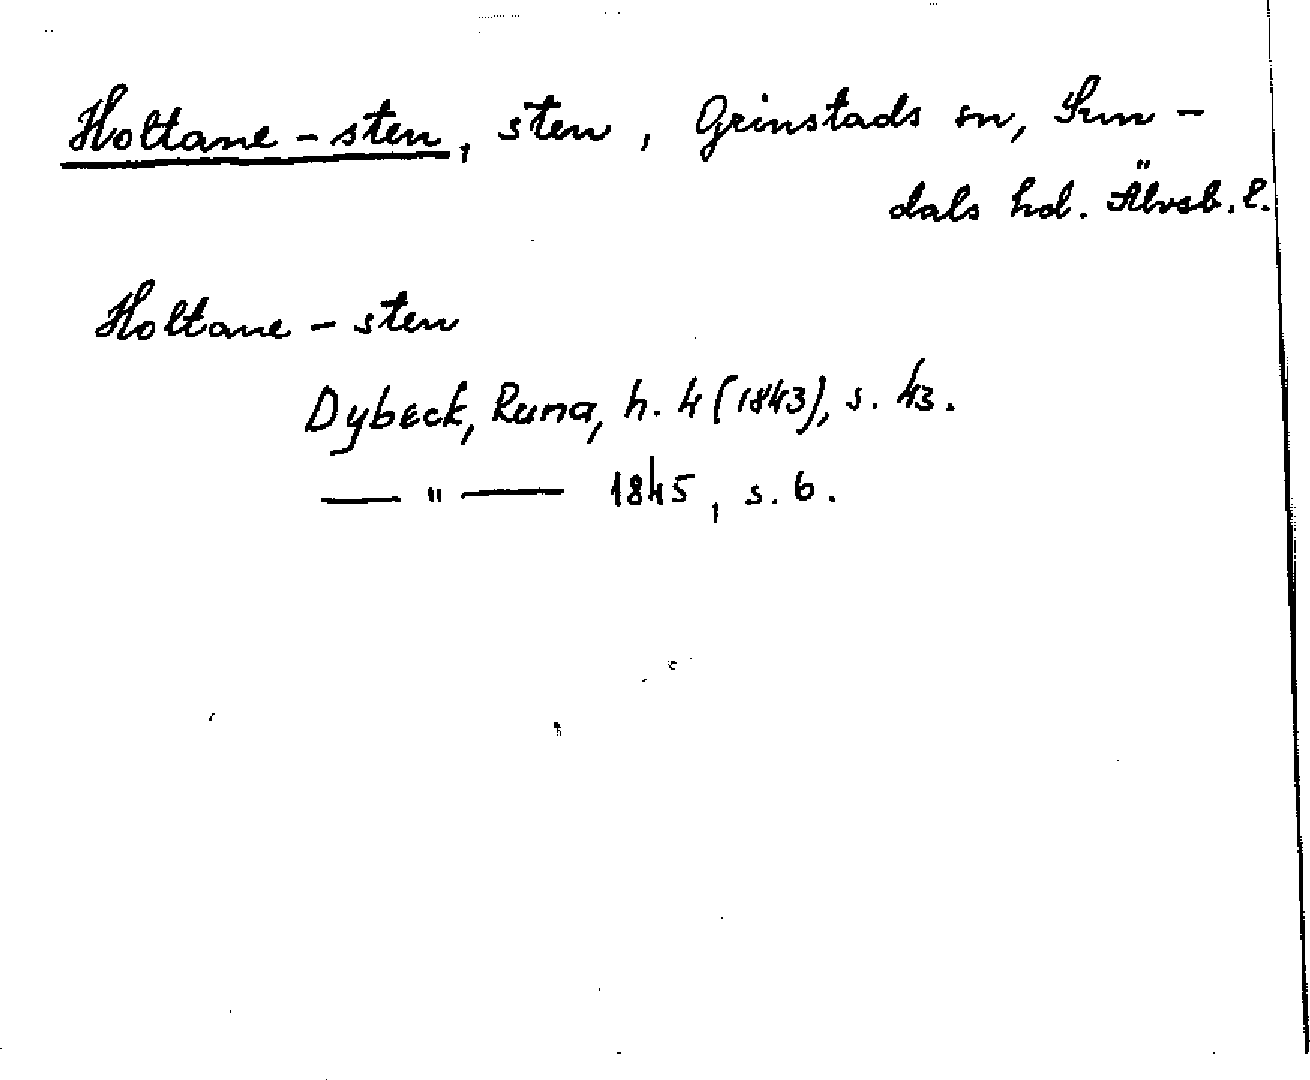 Holtane-sten, sten, Grinstads sn, Sun-
dals hd. Älvsb. l.
Holtane - sten
Dybeck, Runa, h. 4 (1843), s. 43.
— " — 1845, s. 6.